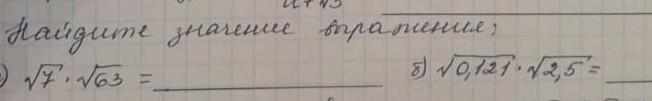 Найдите значение выражения:
) √7 · √63 = ____ б) √0,121 · √2,5 = ____